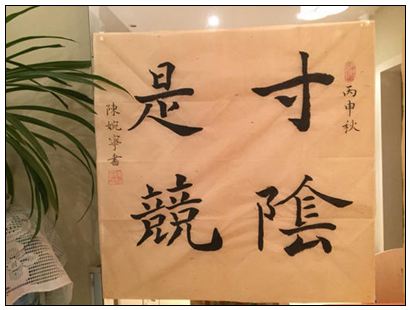 丙申秋
寸陰
是競
陳婉寧書